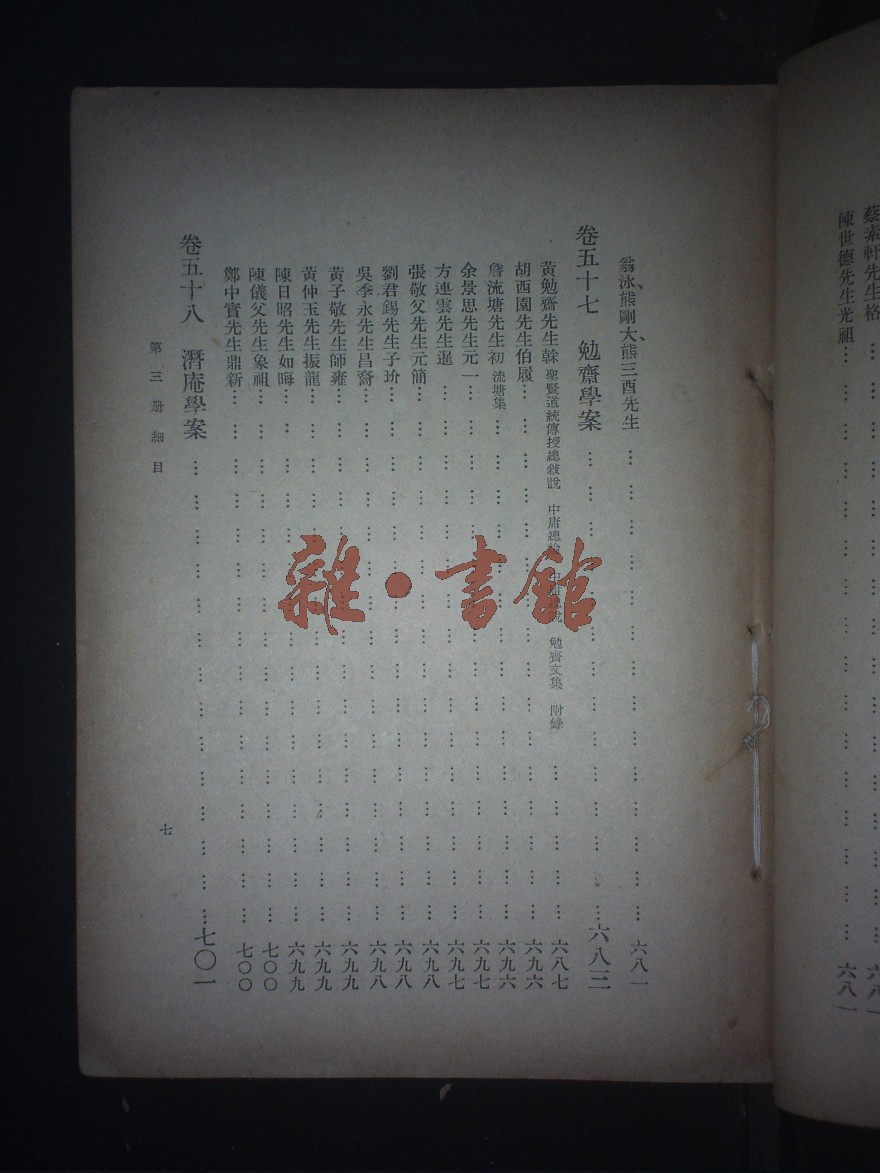 蔡素軒先生格……六八一
陳世德先生光祖……六八一
翁泳、熊剛大、熊三酉先生……六八一
卷五十七　勉齋學案……六八三
黃勉齋先生榦　聖賢道統傳授總敘說　中庸總　勉齋文集　附錄……六八七
胡西園先生伯履……六九六
詹流塘先生初　流塘集……六九六
余景思先生元一……六九七
方連雲先生暹……六九七
張敬父先生元簡……六九八
劉君錫先生子玠……六九八
吳季永先生昌裔……六九八
黃子敬先生師雍……六九九
黃仲玉先生振龍……六九九
陳日昭先生如晦……六九九
陳儀父先生象祖……七〇〇
鄭中實先生鼎新……七〇〇
卷五十八　潛庵學案……七〇一
第三册細目
七
雜·書館